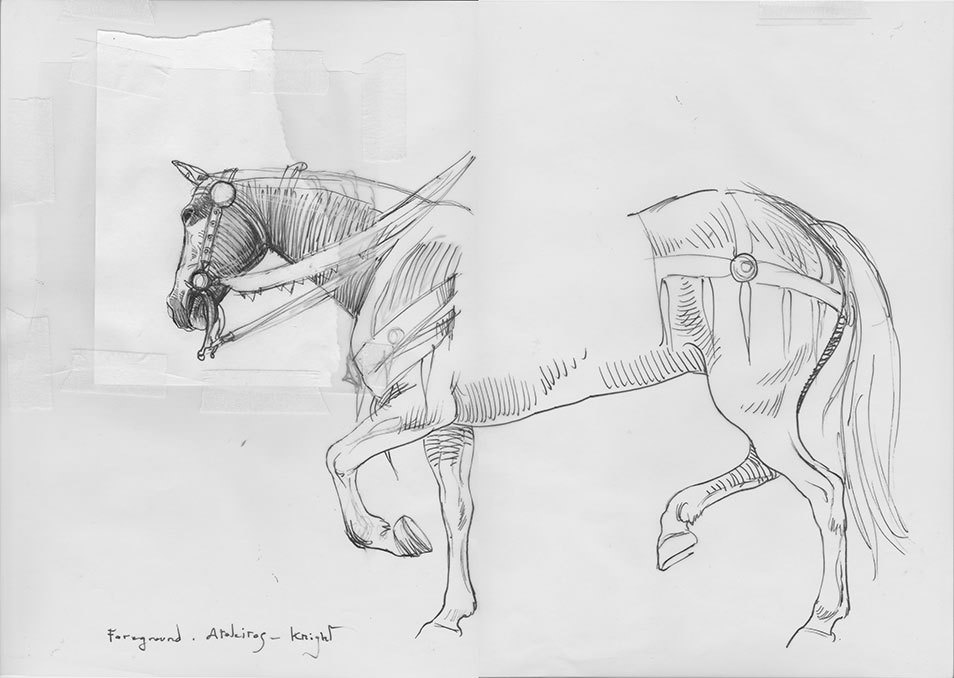 Foreground . Atoleiros - Knight